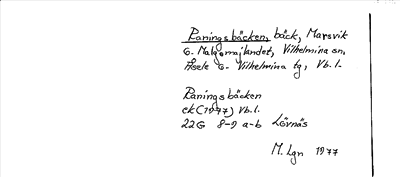 Raningsbäcken, bäck, Marsvik
G. Malgomajlandet, Vilhelmina sn,
Åsele o. Vilhelmina tg, Vb. l.
Raningsbäcken
ek (1977) Vb. l.
22G 8-9 a-b Lövnäs
M. Lgn 1977